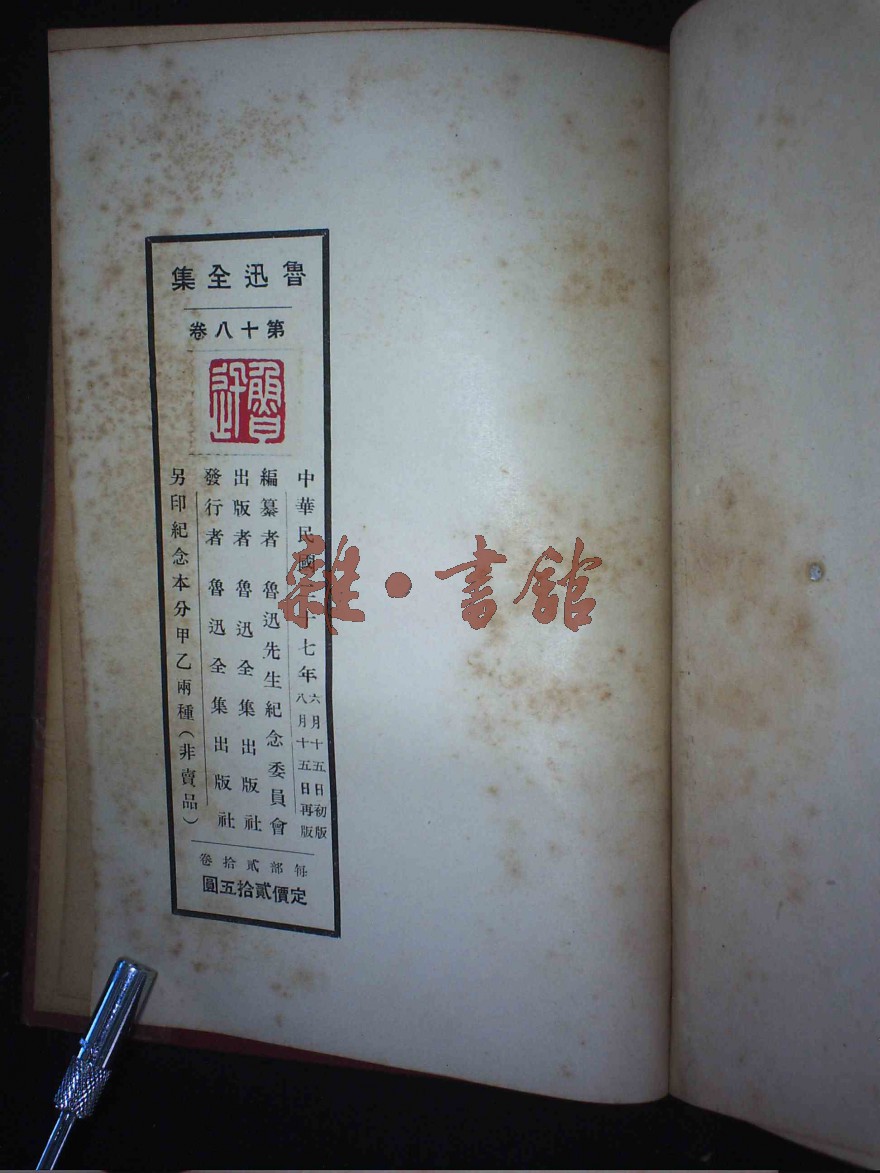 魯迅全集
第十八卷
魯迅
中華民國二十七年六月十五日初版
八月十五日再版
編纂者 魯迅先生紀念委員會
出版者 魯迅全集出版社
發行者 魯迅全集出版社
另印紀念本分甲乙兩種(非賣品)
每部貳拾卷
定價貳拾五圓
雜·書館